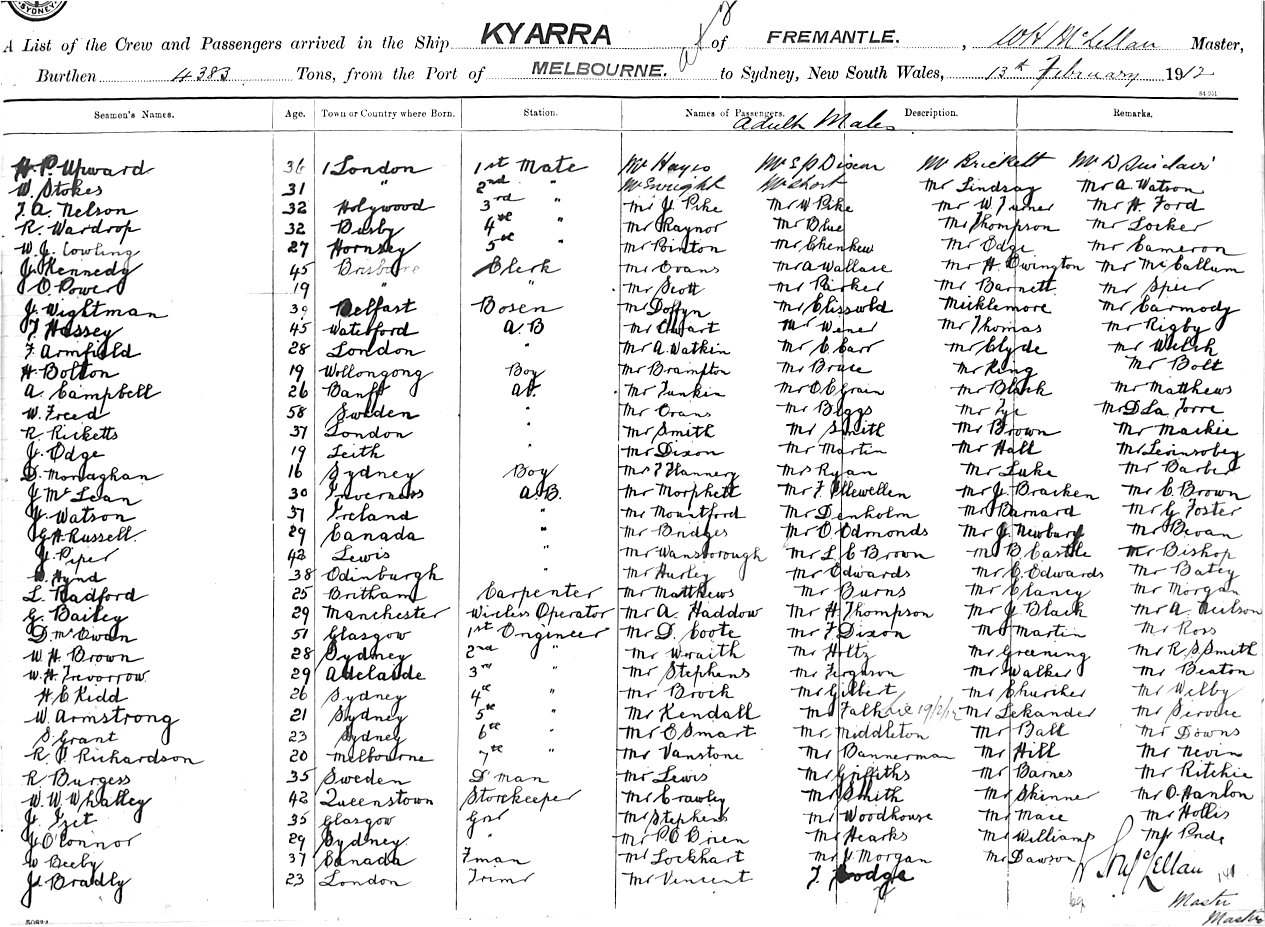 SYDNEY
A List of the Crew and Passengers arrived in the Ship KYARRA of FREMANTLE. , W H McLellan Master,
Burthen 4383 Tons, from the Port of MELBOURNE. to Sydney, New South Wales, 13th February 1912
Seamen's Names. Age. Town or Country where Born. Station. Names of Passengers. Description. Remarks.
Adult Males
H. P. Upward 36 London 1st Mate Mr Hayes Mr S P Mr Brickett Mr D
W. Stokes 31 " 2nd " Mr Enright Mr Short Mr Lindsay Mr A. Watson
F. A. Nelson 32 Holywood 3rd " Mr J. Pike Mr W Pike Mr W Turner Mr H. Ford
R. Wardrop 32 Busby 4th " Mr Raynor Mr Blue Mr Thompson Mr Locker
W. J. Cowling 27 Hornsey 5th " Mr Pointon Mr Mr Edge Mr Cameron
J. Kennedy 45 Brisbane Clerk Mr Evans Mr A Wallace Mr H. Owington Mr McCallum
J O. Power 19 " " Mr Scott Mr Parker Mr Barnett Mr Spier
J. Wightman 39 Belfast Bosen Mr Doffyn Mr Micklemore Mr Carmody
T Hassey 45 Waterford A. B Mr Mr Wener Mr Thomas Mr Rigby
F. Armfield 28 London " Mr A. Watkin Mr C. Carr Mr Clyde Mr Welsh
H. Bolton 19 Wollongong Boy Mr Brampton Mr Bruce Mr King Mr Bolt
A. Campbell 26 Banff AB. Mr Junkin Mr O Efrain Mr Black Mr Matthews
W. Freed 58 Sweden " Mr Evans Mr Biggs Mr Tye Mr D La Torre
R. Ricketts 37 London " Mr Smith Mr Smith Mr Brown Mr Mackie
J. Edge 19 Leith " Mr Dixon Mr Martin Mr Hall Mr Levinsobey
D. Monaghan 16 Sydney Boy Mr T Flannery Mr Ryan Mr Luke Mr Barber
J. McLean 30 Inverness A.B. Mr Morphett Mr F. Llewellen Mr J. Bracken Mr C. Brown
W. Watson 37 Ireland " Mr Mountford Mr Denholm Mr Barnard Mr G. Foster
G. H. Russell 29 Canada " Mr Bridges Mr O Edmonds Mr J. Newbury Mr Bevan
J. Piper 42 Lewis " Mr Wansborough Mr L C Brown Mr B. Castle Mr Bishop
W. Hynd 38 Edinburgh " Mr Hurley Mr Edwards Mr E. Edwards Mr Batey
L. Radford 25 Britham Carpenter Mr Matthews Mr Burns Mr Clancy Mr Morgan
G. Bailey 29 Manchester Wireless Operator Mr A. Haddow Mr H Thompson Mr J Black Mr A. Neilson
D. McEwan 51 Glasgow 1st Engineer Mr D. Coote Mr F Dixon Mr Martin Mr Ross
W. H. Brown 28 Sydney 2nd " Mr Wraith Mr Holtz Mr Greening Mr R S Smith
W. H. Trevorrow 29 Adelaide 3rd " Mr Stephens Mr Ferguson Mr Walker Mr Beaton
H. E Kidd 26 Sydney 4th " Mr Brock Mr Gilbert Mr Churcher Mr Wilby
W. Armstrong 21 Sydney 5th " Mr Kendall Mr Falk 19/2/12 Mr Lekander Mr
S. Grant 23 Sydney 6th " Mr E Smart Mr Middleton Mr Ball Mr Downs
R. P Richardson 20 Melbourne 7th " Mr Vanstone Mr Bannerman Mr Hill Mr Nevin
R Burgess 35 Sweden D'man Mr Lewis Mr Griffiths Mr Barnes Mr Ritchie
W. W Whalley 42 Queenstown Storekeeper Mr Crawley Mr Smith Mr Skinner Mr O. Hanlon
J. 35 Glasgow Gsr Mr Stephens Mr Woodhouse Mr Mace Mr Hollis
J. O'Connor 29 Sydney " Mr P. O'Brien Mr Hearks Mr Williams Mr
W Beeby 37 Canada Fman Mr Lockhart Mr J Morgan Mr Dawson
J. Bradly 23 London Trimr Mr Vincent J. Hodge
W H McLellan 141
Master
Master